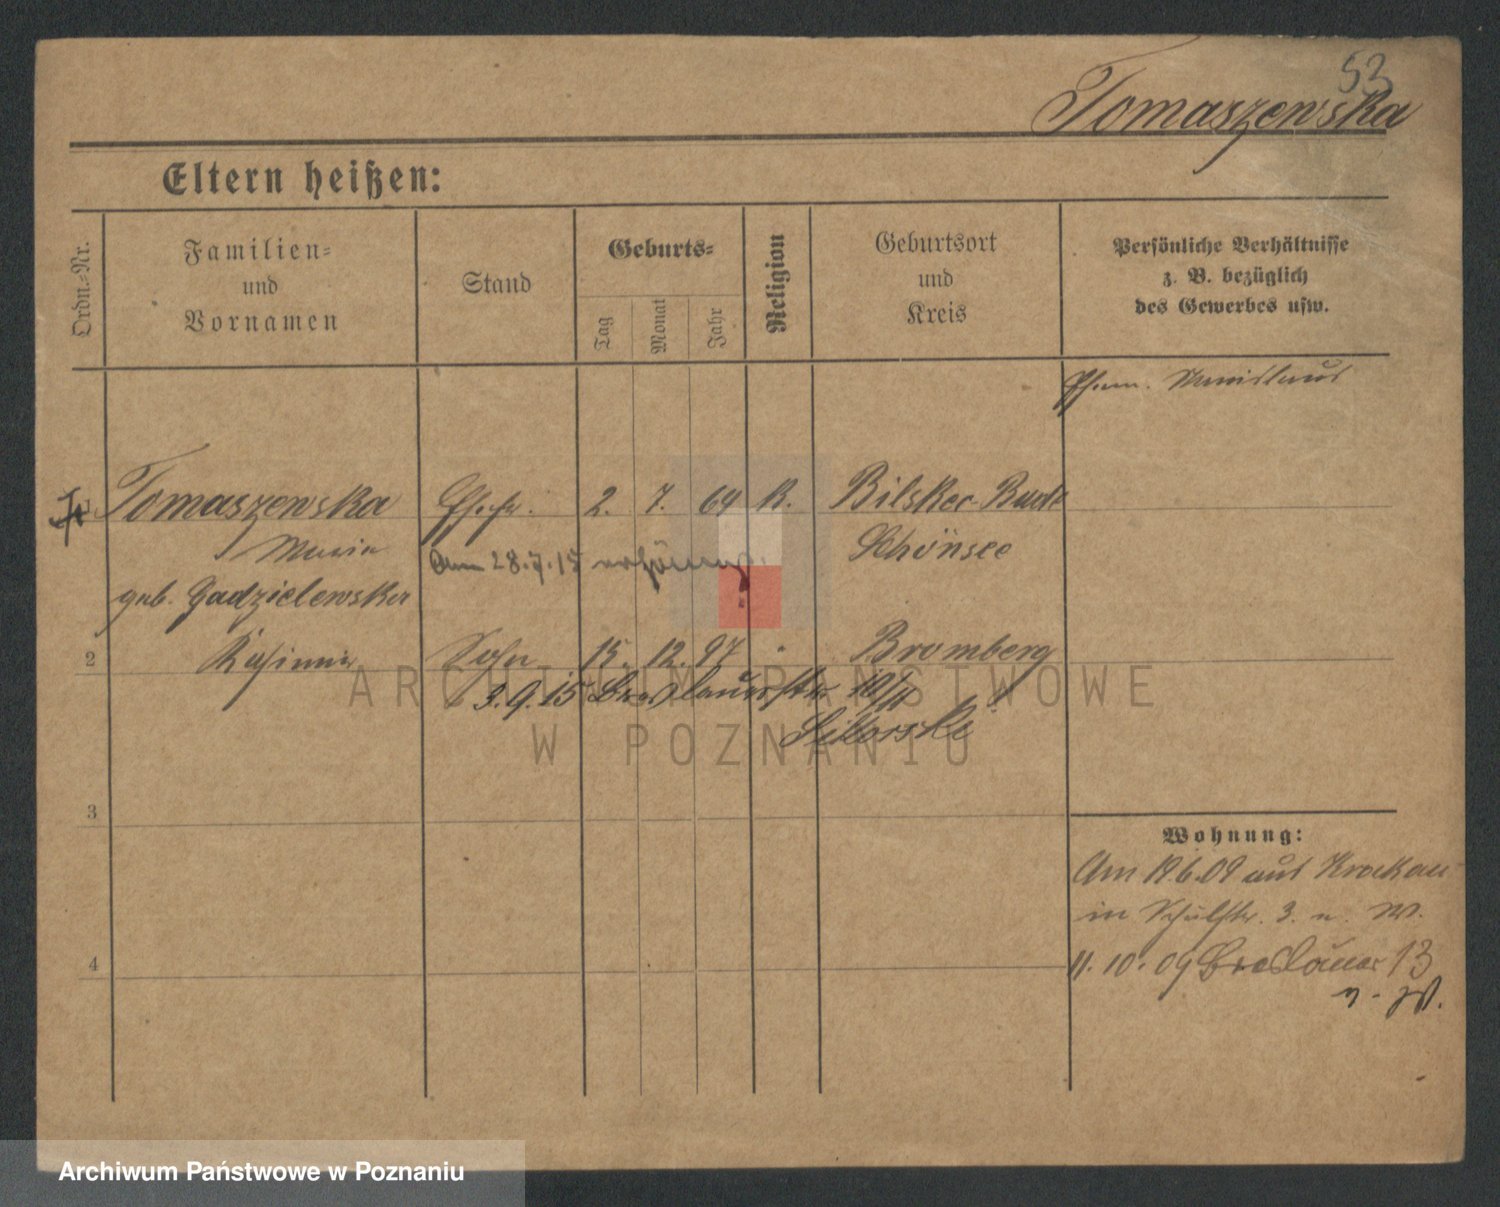 53
Tomaszewska
Eltern heißen:
Ordn.-Nr.
Familien-
und
Vornamen
Stand
Geburts-
Tag
Monat
Jahr
Religion
Geburtsort
und
Kreis
Persönliche Verhältnisse
z. B. bezüglich
des Gewerbes usw.
Ehem. Stanislaus
1 Tomaszewska Ehefr. 2. 7. 64 K.
Maria Schönsee
Am 28.7.15
geb.
2 Kasimir Sohn 15. 12. 97 " Bromberg
3.9.15 Breslauerstr.
Sikorski
3
4
Wohnung:
Am 19.6.09 aus Krakau
in Schulstr. 3. n. W.
11.10.09 Breslauer 13
n. W.
ARCHIWUM PAŃSTWOWE
W POZNANIU
Archiwum Państwowe w Poznaniu